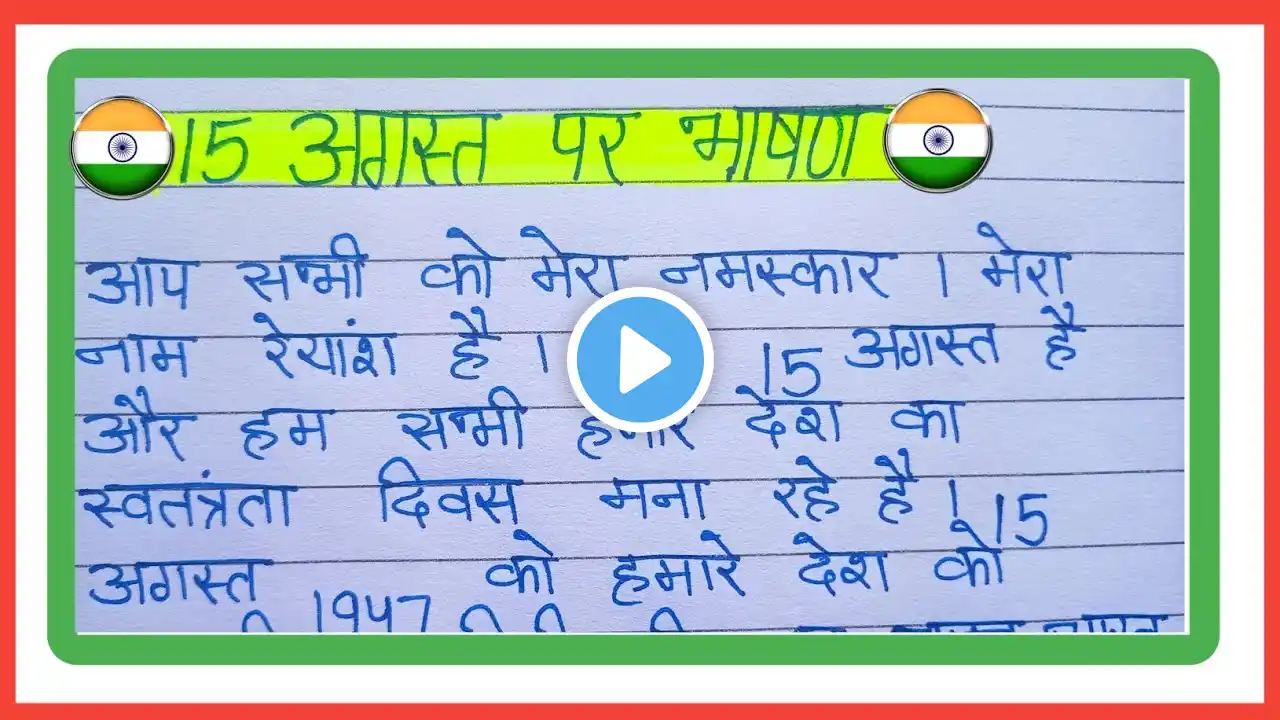 15 अगस्त पर भाषण
आप सभी को मेरा नमस्कार । मेरा
नाम रेयांश है । 15 अगस्त है
और हम सभी हमारे देश का
स्वतंत्रता दिवस मना रहे है । 15
अगस्त 1947 को हमारे देश को